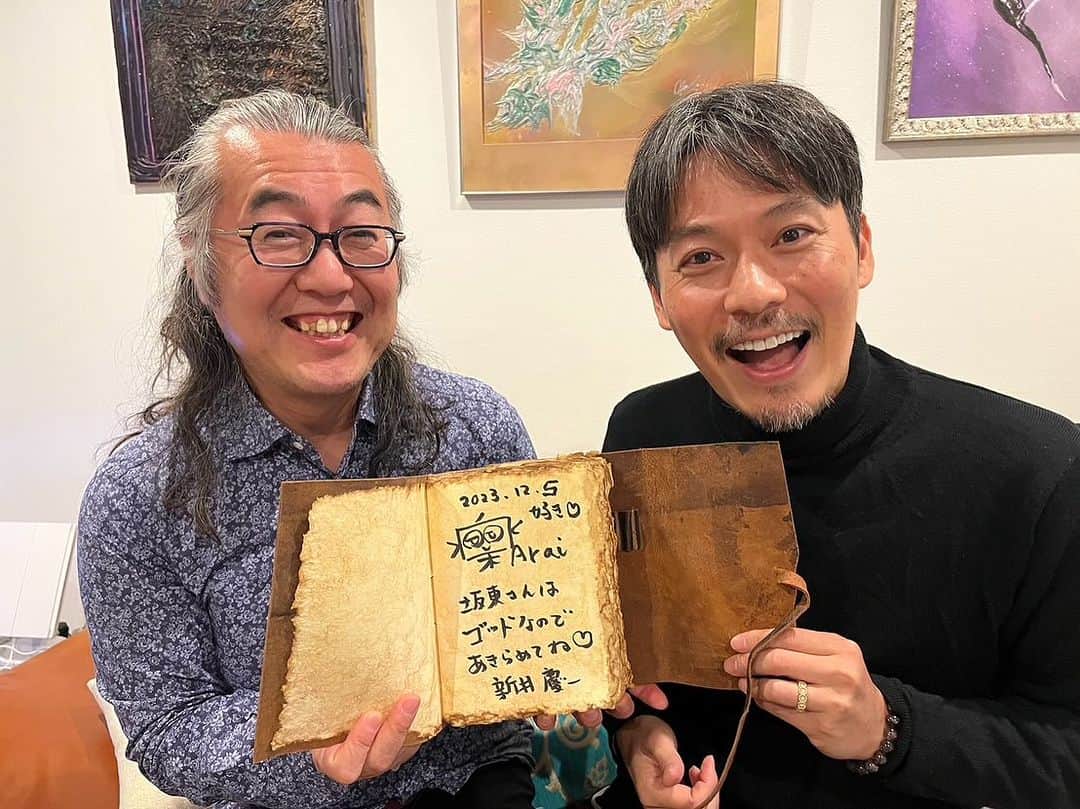 2023.12.5
好き♡
楽
Arai
坂東さんは
ゴッドなので
あきらめてね♡
新井慶一